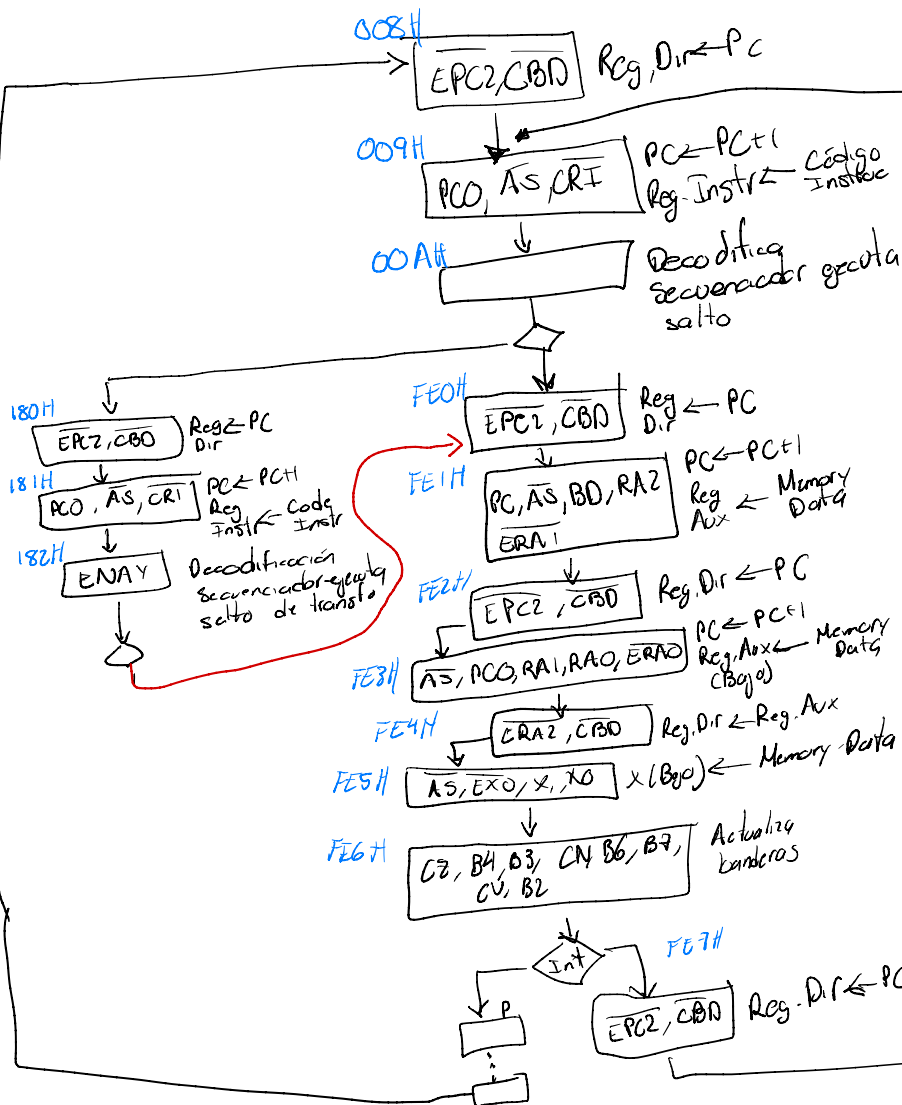 008H
EPC2, CBD
Reg, Dir ← PC
009H
PCO, AS, CRI
PC ← PC+1
Reg. Instr ← Código
Instruc
00AH
Decodifica
secuenciador ejecuta
salto
180H
EPC2, CBD
Reg ← PC
Dir
181H
PCO, AS, CRI
PC ← PC+1
Reg
Instr ← Code
Instr
182H
ENAY
Decodificación
secuenciador ejecuta
salto de transfo
FE0H
EPC2, CBD
Reg ← PC
Dir
FE1H
PC, AS, BD, RA2
ERA1
PC ← PC+1
Reg ← Memory
Aux Data
FE2H
EPC2, CBD
Reg. Dir ← PC
FE3H
AS, PCO, RA1, RA0, ERA0
PC ← PC+1
Reg. Aux ← Memory
(Bajo) Data
FE4H
CRA2, CBD
Reg. Dir ← Reg. Aux
FE5H
AS, EX0, X1, X0
X (Bajo) ← Memory Data
FE6H
CZ, B4, B3, CN, B6, B7,
CV, B2
Actualiza
banderas
Int
FE7H
P
EPC2, CBD
Reg. Dir ← PC